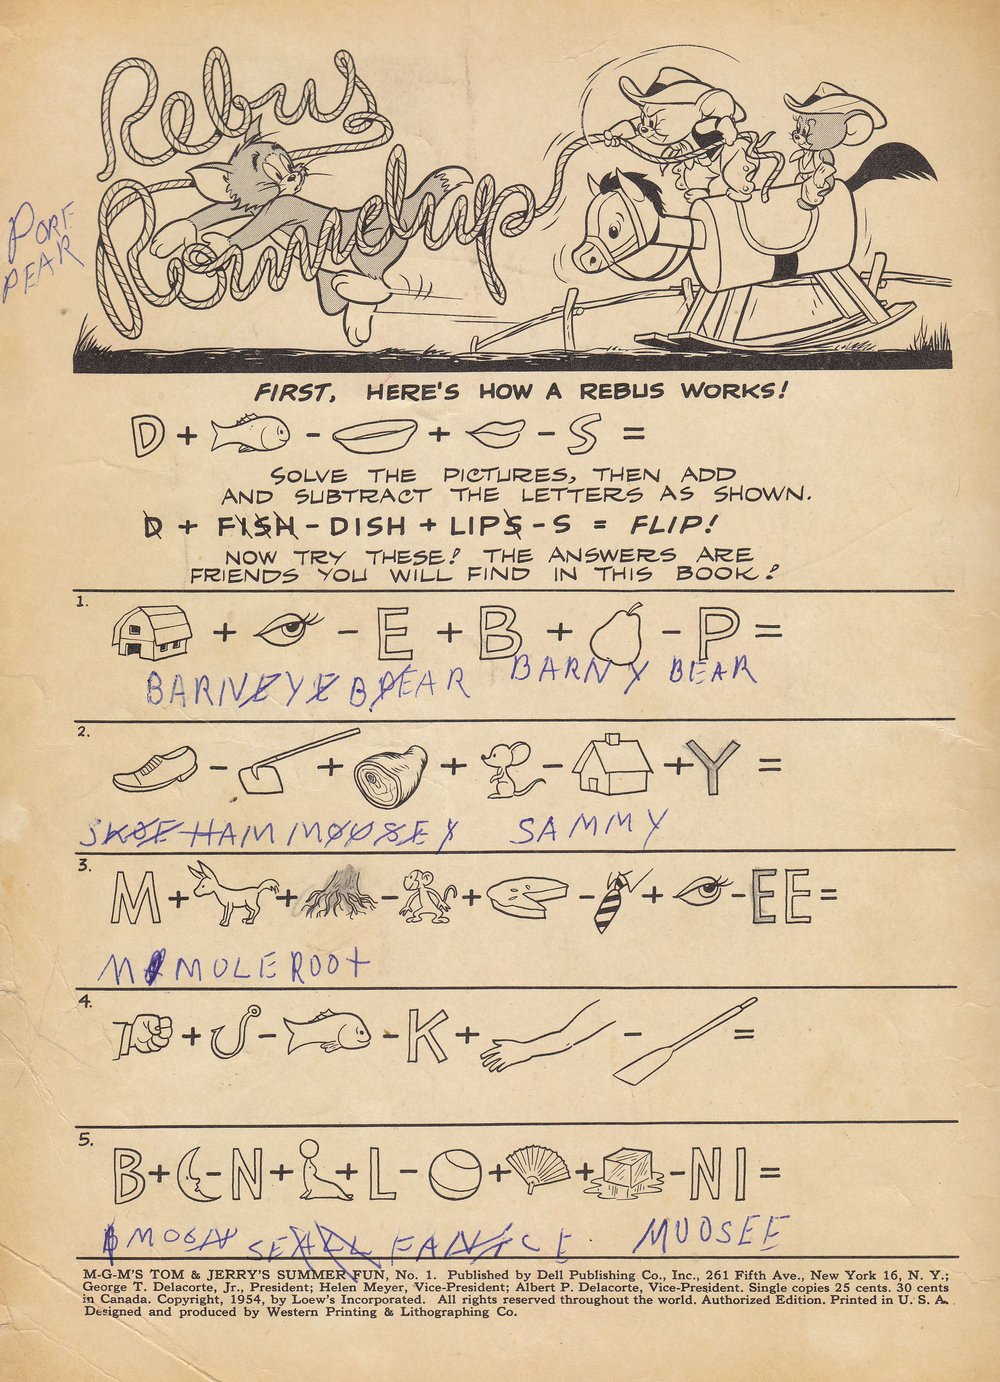 Rebus
Roundup
PORF
PEAR
FIRST, HERE'S HOW A REBUS WORKS!
D + - + - S =
SOLVE THE PICTURES, THEN ADD
AND SUBTRACT THE LETTERS AS SHOWN.
D + FISH - DISH + LIPS - S = FLIP!
NOW TRY THESE! THE ANSWERS ARE
FRIENDS YOU WILL FIND IN THIS BOOK!
1.
+ - E + B + - P =
BARNEYE BPEAR BARNY BEAR
2.
- + + - + Y =
SHOE HAM MOUSEY SAMMY
3.
M + + - + - + - EE =
M MULEROOT
4.
+ - - K + - =
5.
B + - N + + L - + + - NI =
BMOON SEALL FANICE MUOSEE
M-G-M'S TOM & JERRY'S SUMMER FUN, No. 1. Published by Dell Publishing Co., Inc., 261 Fifth Ave., New York 16, N. Y.;
George T. Delacorte, Jr., President; Helen Meyer, Vice-President; Albert P. Delacorte, Vice-President. Single copies 25 cents. 30 cents
in Canada. Copyright, 1954, by Loew's Incorporated. All rights reserved throughout the world. Authorized Edition. Printed in U. S. A.
Designed and produced by Western Printing & Lithographing Co.